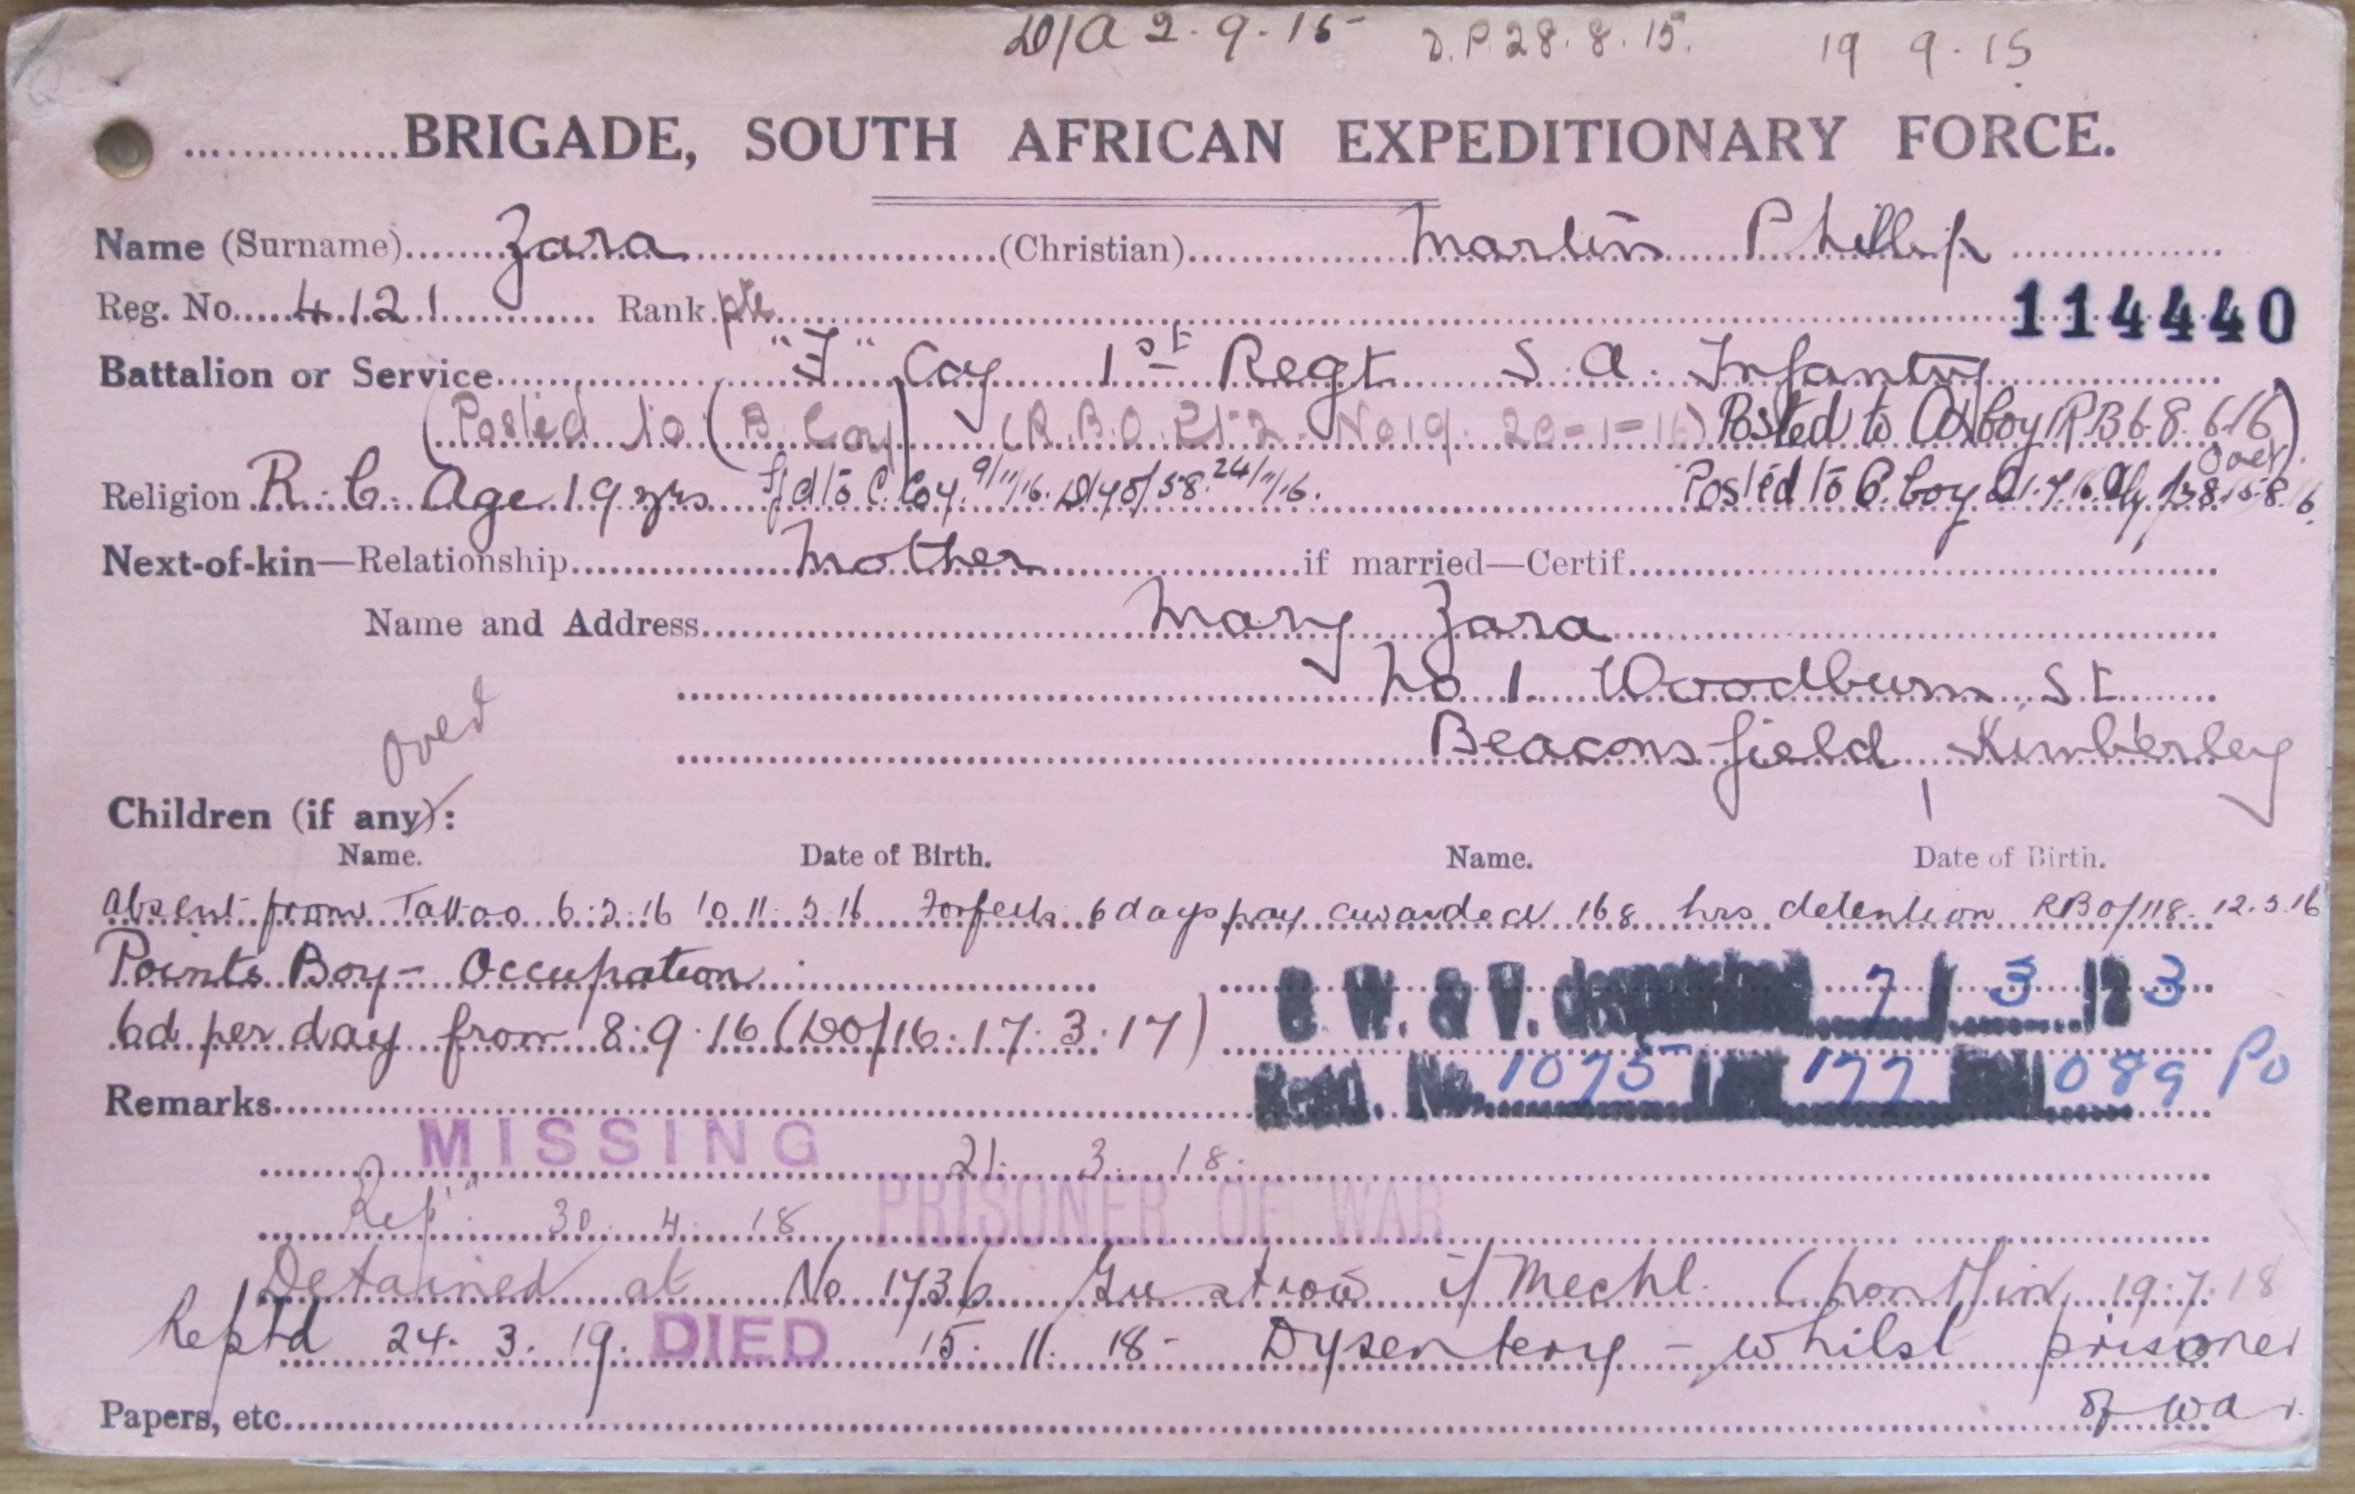 D/A 2.9.15 D.P. 28.8.15. 19 9.15
BRIGADE, SOUTH AFRICAN EXPEDITIONARY FORCE.
Name (Surname) Zara (Christian) Martin Phillip
Reg. No. 4121 Rank pte 114440
Battalion or Service "F" Coy 1st Regt S. A. Infantry
(Posted to (B. Coy) (R.B.O. Pt 2 No 19. 20-1-16) Posted to Coy 8.6.16)
Over
Religion R.C. Age 19 yrs tfd to C. Coy. 9/11/16. 24/11/16. Posted to Coy
Next-of-kin—Relationship Mother if married—Certif.
Name and Address Mary Zara
No 1 Woodburn St
Beaconsfield, Kimberley
Over
Children (if any):
Name. Date of Birth. Name. Date of Birth.
Absent from Tattoo 6.3.16 to 11.3.16 Forfeits 6 days pay awarded 168 hrs detention RBO/118. 12.3.16
Points Boy - Occupation
6d per day from 8.9.16 (DO/16. 17.3.17)
B. W. & V. despatched 7 / 3 / 23
Regd. No. 1075 177 089 Po
Remarks
MISSING 21. 3. 18.
Rep. 30. 4. 18 PRISONER OF WAR
Detained at No 1736 Gustrow i/ Mechl. 19.7.18
Reptd 24. 3. 19. DIED 15. 11. 18 - Dysentery - whilst prisoner
of war.
Papers, etc.